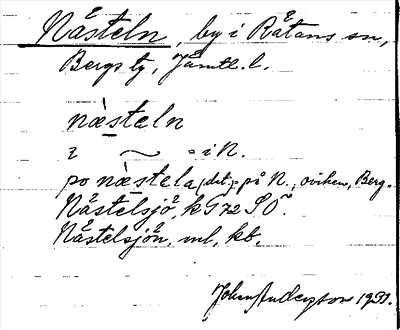 Nåsteln, by i Råtans sn,
Bergs tg, Jämtl. l.
næsteln
i ~ = i N.
po næstela (dat.) = på N., oviken, Berg.
Nåstelsjö, k G72 SÖ.
Nåstelsjön, ml, kb.
John Anderson 1931.